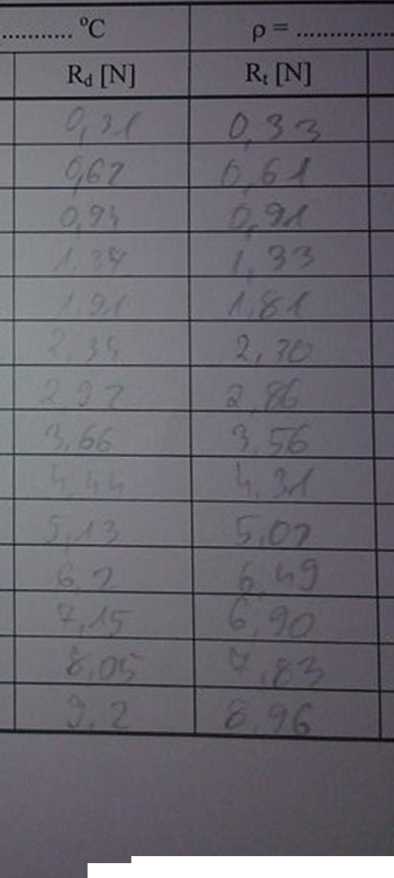 ............ °C ρ = ..............
R_d [N] R_t [N]
0,31 0,33
0,67 0,61
0,94 0,91
1,34 1,33
1,91 1,81
2,34 2,30
2,97 2,86
3,66 3,56
4,44 4,31
5,13 5,07
6,2 6,49
7,15 6,90
8,05 7,83
9,2 8,96